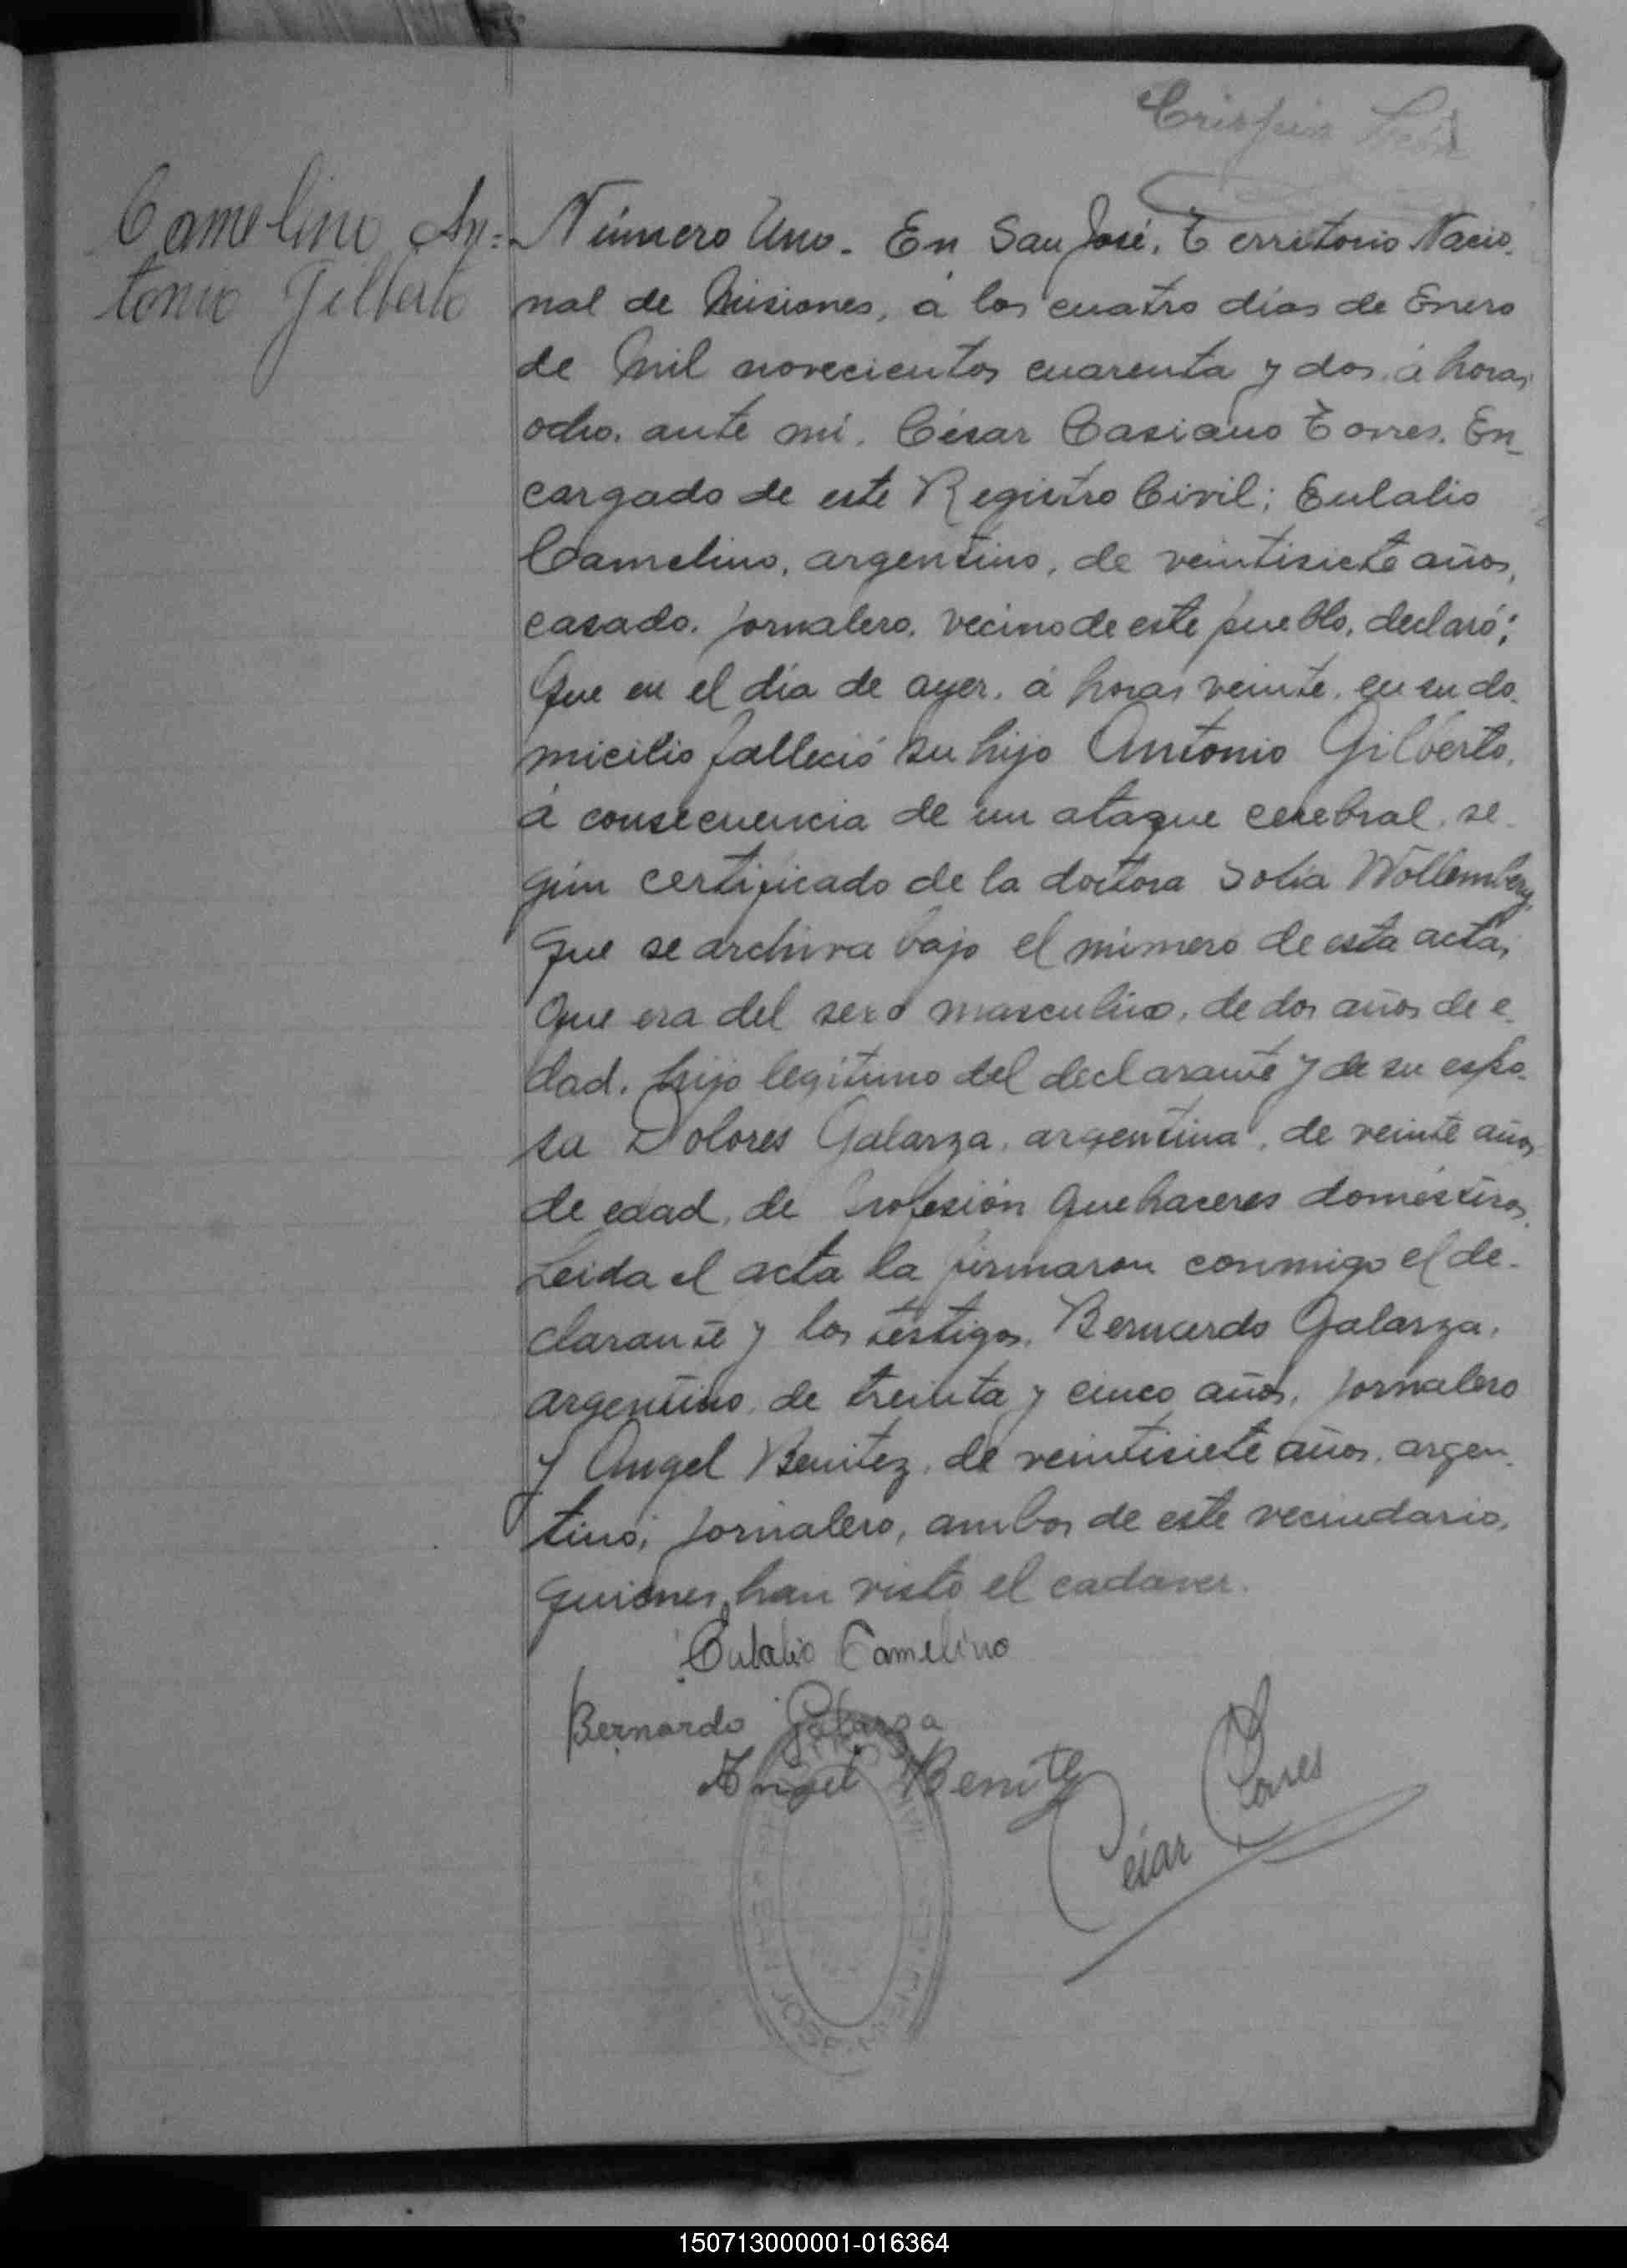 Crispin León
Camelino An=
tonio Gilberto
Número Uno. En San José, Territorio Nacio-
nal de Misiones, á los cuatro días de Enero
de Mil novecientos cuarenta y dos, á horas
ocho, ante mí, César Casiano Torres, En-
cargado de este Registro Civil; Eulalio
Camelino, argentino, de veintisiete años,
casado, jornalero, vecino de este pueblo, declaró;
Que en el día de ayer, á horas veinte, en su do-
micilio falleció su hijo Antonio Gilberto,
á consecuencia de un ataque cerebral, se-
gún certificado de la doctora Sofia Wollemberg,
que se archiva bajo el número de esta acta;
Que era del sexo masculino, de dos años de e-
dad, hijo legítimo del declarante y de su espo-
sa Dolores Galarza, argentina, de veinte años
de edad, de Profesión Quehaceres domésticos.
Leida el acta la firmaron conmigo el de-
clarante y los testigos, Bernardo Galarza,
argentino, de treinta y cinco años, jornalero
y Angel Benitez, de veintisiete años, argen-
tino, jornalero, ambos de este vecindario,
quienes han visto el cadaver.
Eulalio Camelino
Bernardo Galarza
Angel Benitez
César Torres
SAN JOSE
150713000001-016364